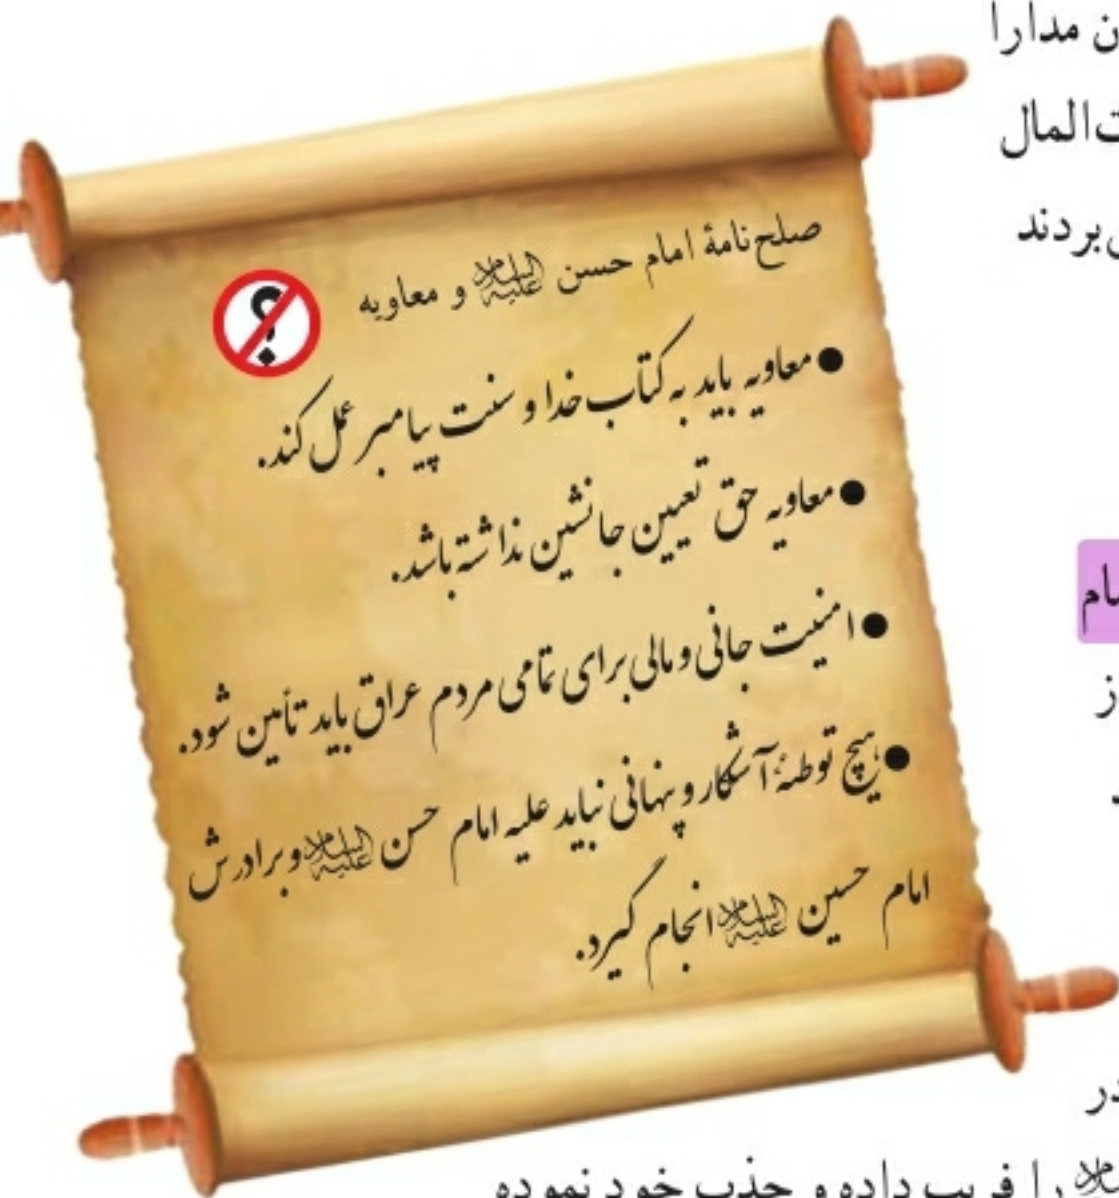 ن مدارا
ت‌المال
ی‌بردند
صلح‌نامهٔ امام حسن علیه السلام و معاویه
؟
●معاویه باید به کتاب خدا و سنت پیامبر عمل کند.
●معاویه حق تعیین جانشین نداشته باشد.
●امنیت جانی و مالی برای تمامی مردم عراق باید تأمین شود.
●هیچ توطئهٔ آشکار و پنهانی نباید علیه امام حسن علیه السلام و برادرش
امام حسین علیه السلام انجام گیرد.
را فریب داده و جذب خود نموده